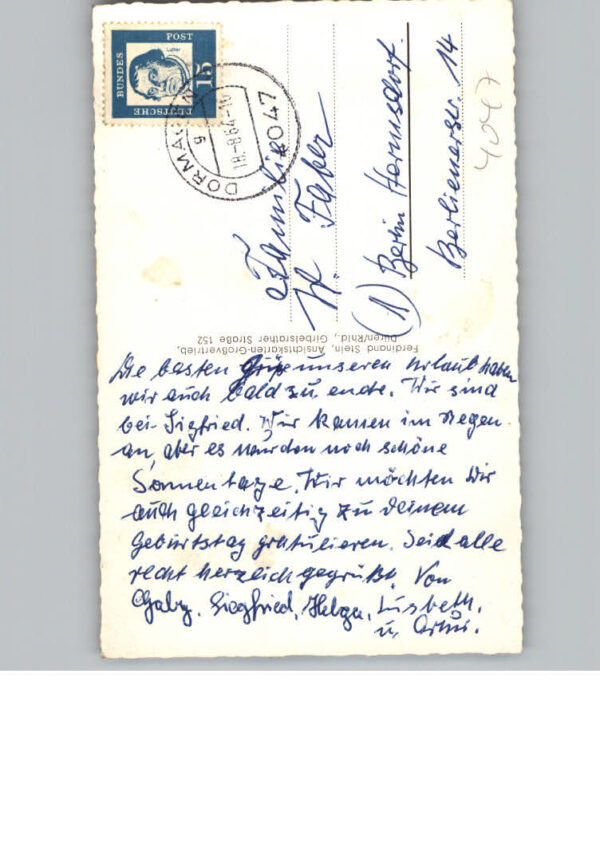 DEUTSCHE
BUNDES
POST
15
Luther
DORMAGEN
18.-8.64-10
4047
Familie
W. Faber
(1) Berlin Hermsdorf.
Berlienerstr. 14
4047
Ferdinand Stein, Ansichtskarten-Großvertrieb,
Düren/Rhld., Girbelsrather Straße 152
Die besten Grüße unseren Urlaub haben
wir auch bald zu ende. Wir sind
bei Sigfried. Wir kamen im Regen
an, aber es wurden noch schöne
Sonnentage. Wir möchten Dir
auch gleichzeitig zu deinem
Geburtstag gratulieren. Seid alle
recht herzlich gegrüßt. Von
Gaby, Siegfried, Helga, Lisbeth,
u. Artur.